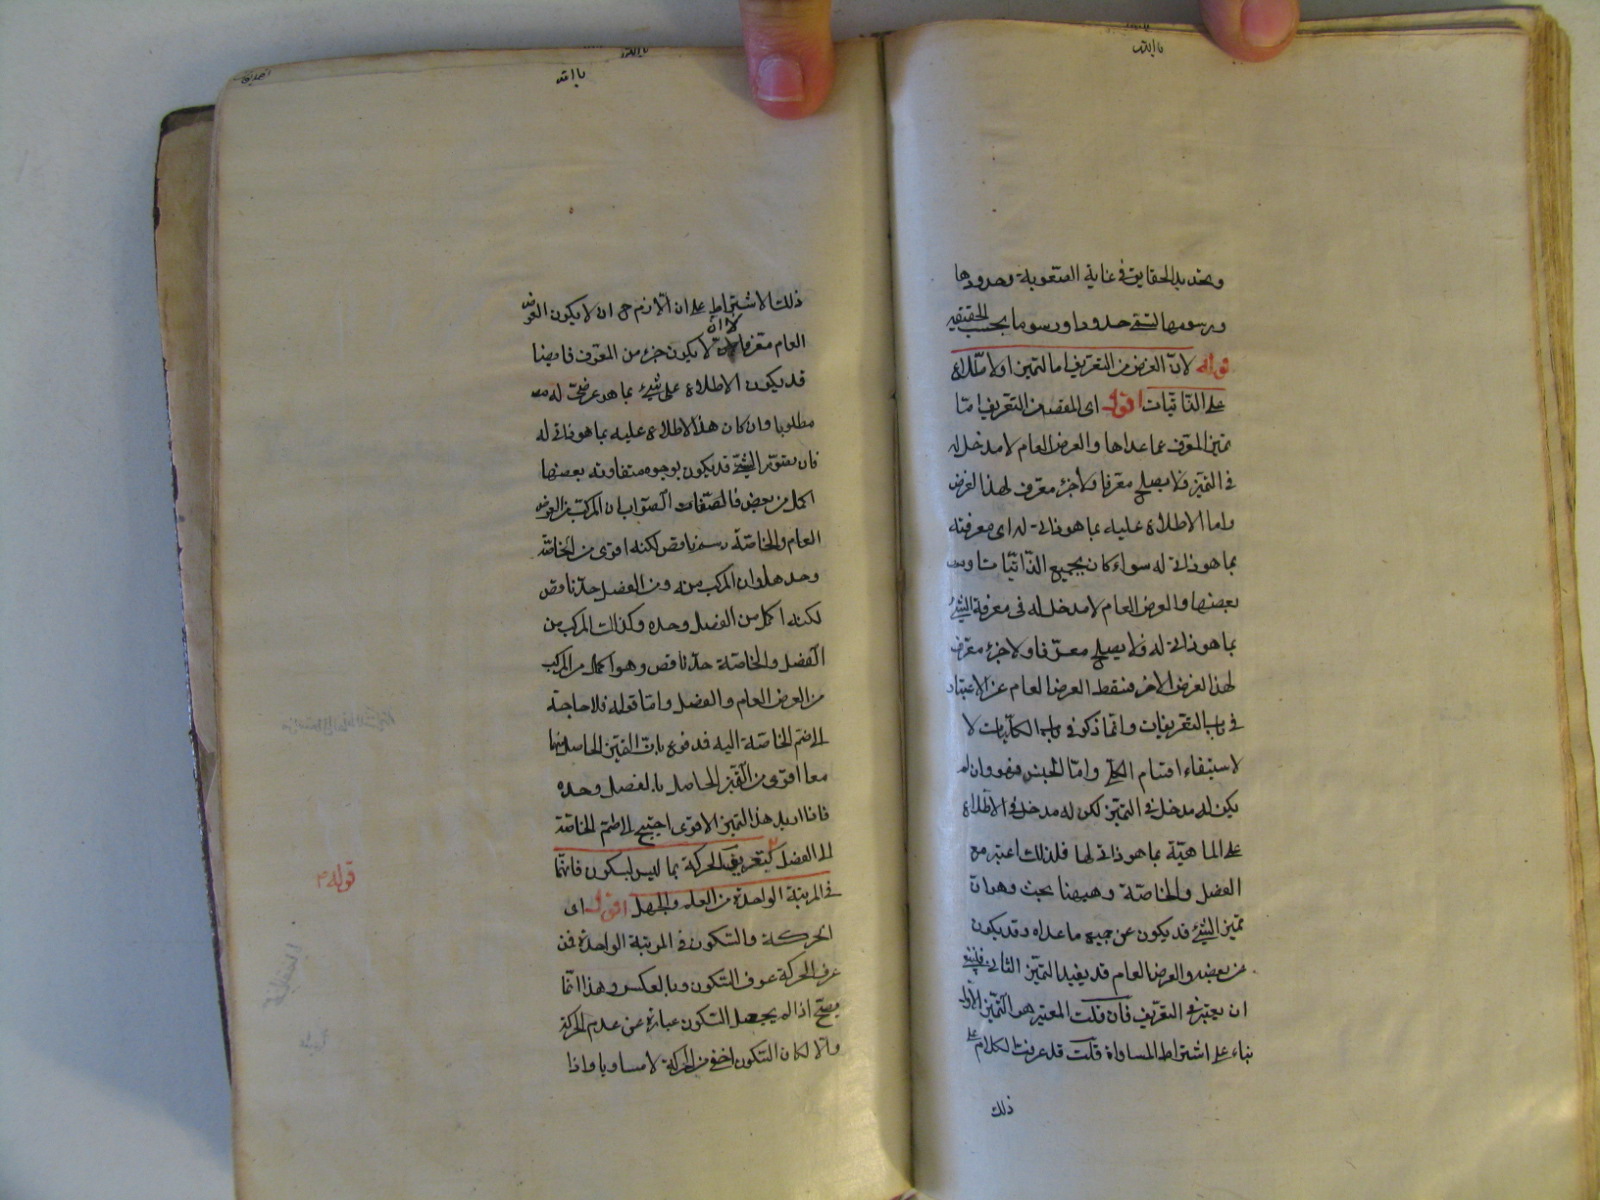 يا الله
وتحديد الحقايق في غاية الصعوبة وحدودها
ورسومها تسمى حدودا ورسوما بحسب الحقيقة
قوله لان الغرض من التعريف اما التميز او الاطلاع
على الذاتيات اقول اى المقصد من التعريف اما
تميز المعرف عما عداها والعرض العام لا مدخل له
في التميز فلا يصلح معرفا ولا جزء معرف لهذا الغرض
واما الاطلاع عليه بما هو ذاتي له اى معرفته
بما هو ذاتي له سواء كان بجميع الذاتيات او
بعضها والعرض العام لا مدخل له في معرفة الشئ
بما هو ذاتي له فلا يصلح معرفا ولا جزء معرف
لهذا الغرض الاخر فسقط العرض العام عن الاعتبار
في باب التعريفات وانما ذكر في باب الكليات لا
لاستيفاء اقسام الكلي واما الجنس فهو وان لم
يكن له مدخل في التميز لكن له مدخل في الاطلاع
على الماهية بما هو ذاتي لها فلذلك اعتبر مع
الفصل والخاصة وهيهنا بحث وهو ان
تميز الشئ قد يكون عن جميع ما عداه وقد يكون
عن بعضه والعرض العام قد يفيد التميز الثاني فينبغي
ان يعتبر في التعريف فان قلت المعتبر هو التميز الاول
بناء على اشتراط المساواة قلت قد عرفت الكلام على
ذلك
يا الله
ذلك الاشتراط على ان اللازم ح ان لا يكون العرض
العام معرفا لا ان لا يكون جزء من المعرف فايضا
قد يكون الاطلاع على شئ بما هو عرضي له
مطلوبا وان كان هذا الاطلاع عليه بما هو ذاتي له
فان تصور الشئ قد يكون بوجوه متفاوته بعضها
اكمل من بعض فالصواب ان المركب من العرض
العام والخاصة رسم ناقص لكنه اقوى من الخاصة
وحدها وان المركب منه ومن الفصل حد ناقص
لكنه اكمل من الفصل وحده وكذلك المركب من
الفصل والخاصة حد ناقص وهو اكمل من المركب
من العرض العام والفصل واما قوله فلا حاجة
الى ضم الخاصة اليه فمدفوع بان التميز الحاصل منهما
معا اقوى من التميز الحاصل بالفصل وحده
فاذا اريد هذا التميز الاقوى احتيج الى ضم الخاصة
الى الفصل كتعريف الحركة بما ليس بسكون فانهما
قوله
في المرتبة الواحدة من العلم والجهل اقول اى
الحركة والسكون في المرتبة الواحدة فمن
عرف الحركة عرف السكون وبالعكس وهذا انما
يصح اذا لم يجعل السكون عبارة عن عدم الحركة
والا لكان السكون اخفى من الحركة لا مساويا واذا